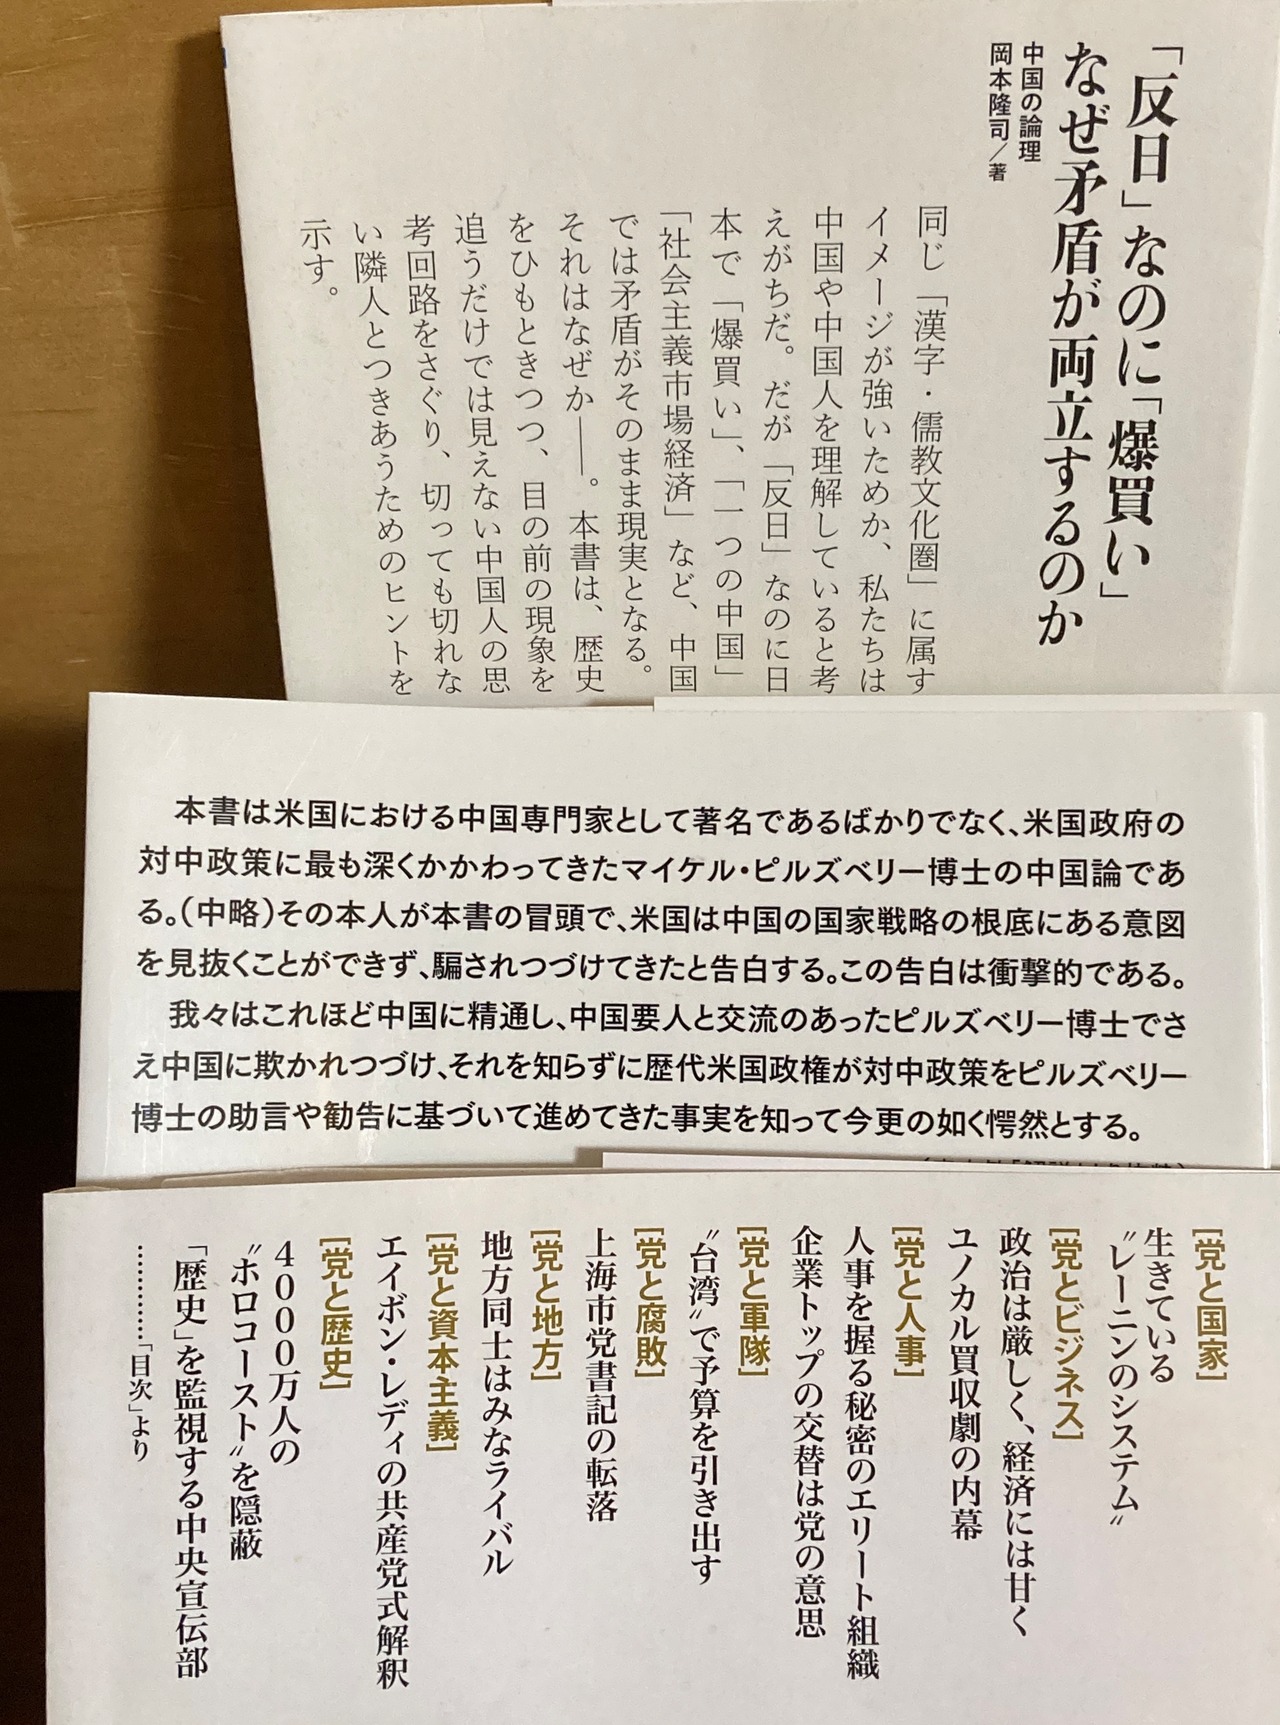 「反日」なのに「爆買い」
なぜ矛盾が両立するのか
中国の論理
岡本隆司/著
同じ「漢字・儒教文化圏」に属す
イメージが強いためか、私たちは
中国や中国人を理解していると考
えがちだ。だが「反日」なのに日
本で「爆買い」、「一つの中国」
「社会主義市場経済」など、中国
では矛盾がそのまま現実となる。
それはなぜか――。本書は、歴史
をひもときつつ、目の前の現象を
追うだけでは見えない中国人の思
考回路をさぐり、切っても切れな
い隣人とつきあうためのヒントを
示す。
本書は米国における中国専門家として著名であるばかりでなく、米国政府の
対中政策に最も深くかかわってきたマイケル・ピルズベリー博士の中国論であ
る。(中略)その本人が本書の冒頭で、米国は中国の国家戦略の根底にある意図
を見抜くことができず、騙されつづけてきたと告白する。この告白は衝撃的である。
我々はこれほど中国に精通し、中国要人と交流のあったピルズベリー博士でさ
え中国に欺かれつづけ、それを知らずに歴代米国政権が対中政策をピルズベリー
博士の助言や勧告に基づいて進めてきた事実を知って今更の如く愕然とする。
[党と国家]
生きている
〝レーニンのシステム〟
[党とビジネス]
政治は厳しく、経済には甘く
ユノカル買収劇の内幕
[党と人事]
人事を握る秘密のエリート組織
企業トップの交替は党の意思
[党と軍隊]
〝台湾〟で予算を引き出す
[党と腐敗]
上海市党書記の転落
[党と地方]
地方同士はみなライバル
[党と資本主義]
エイボン・レディの共産党式解釈
[党と歴史]
4000万人の
〝ホロコースト〟を隠蔽
「歴史」を監視する中央宣伝部
…………「目次」より